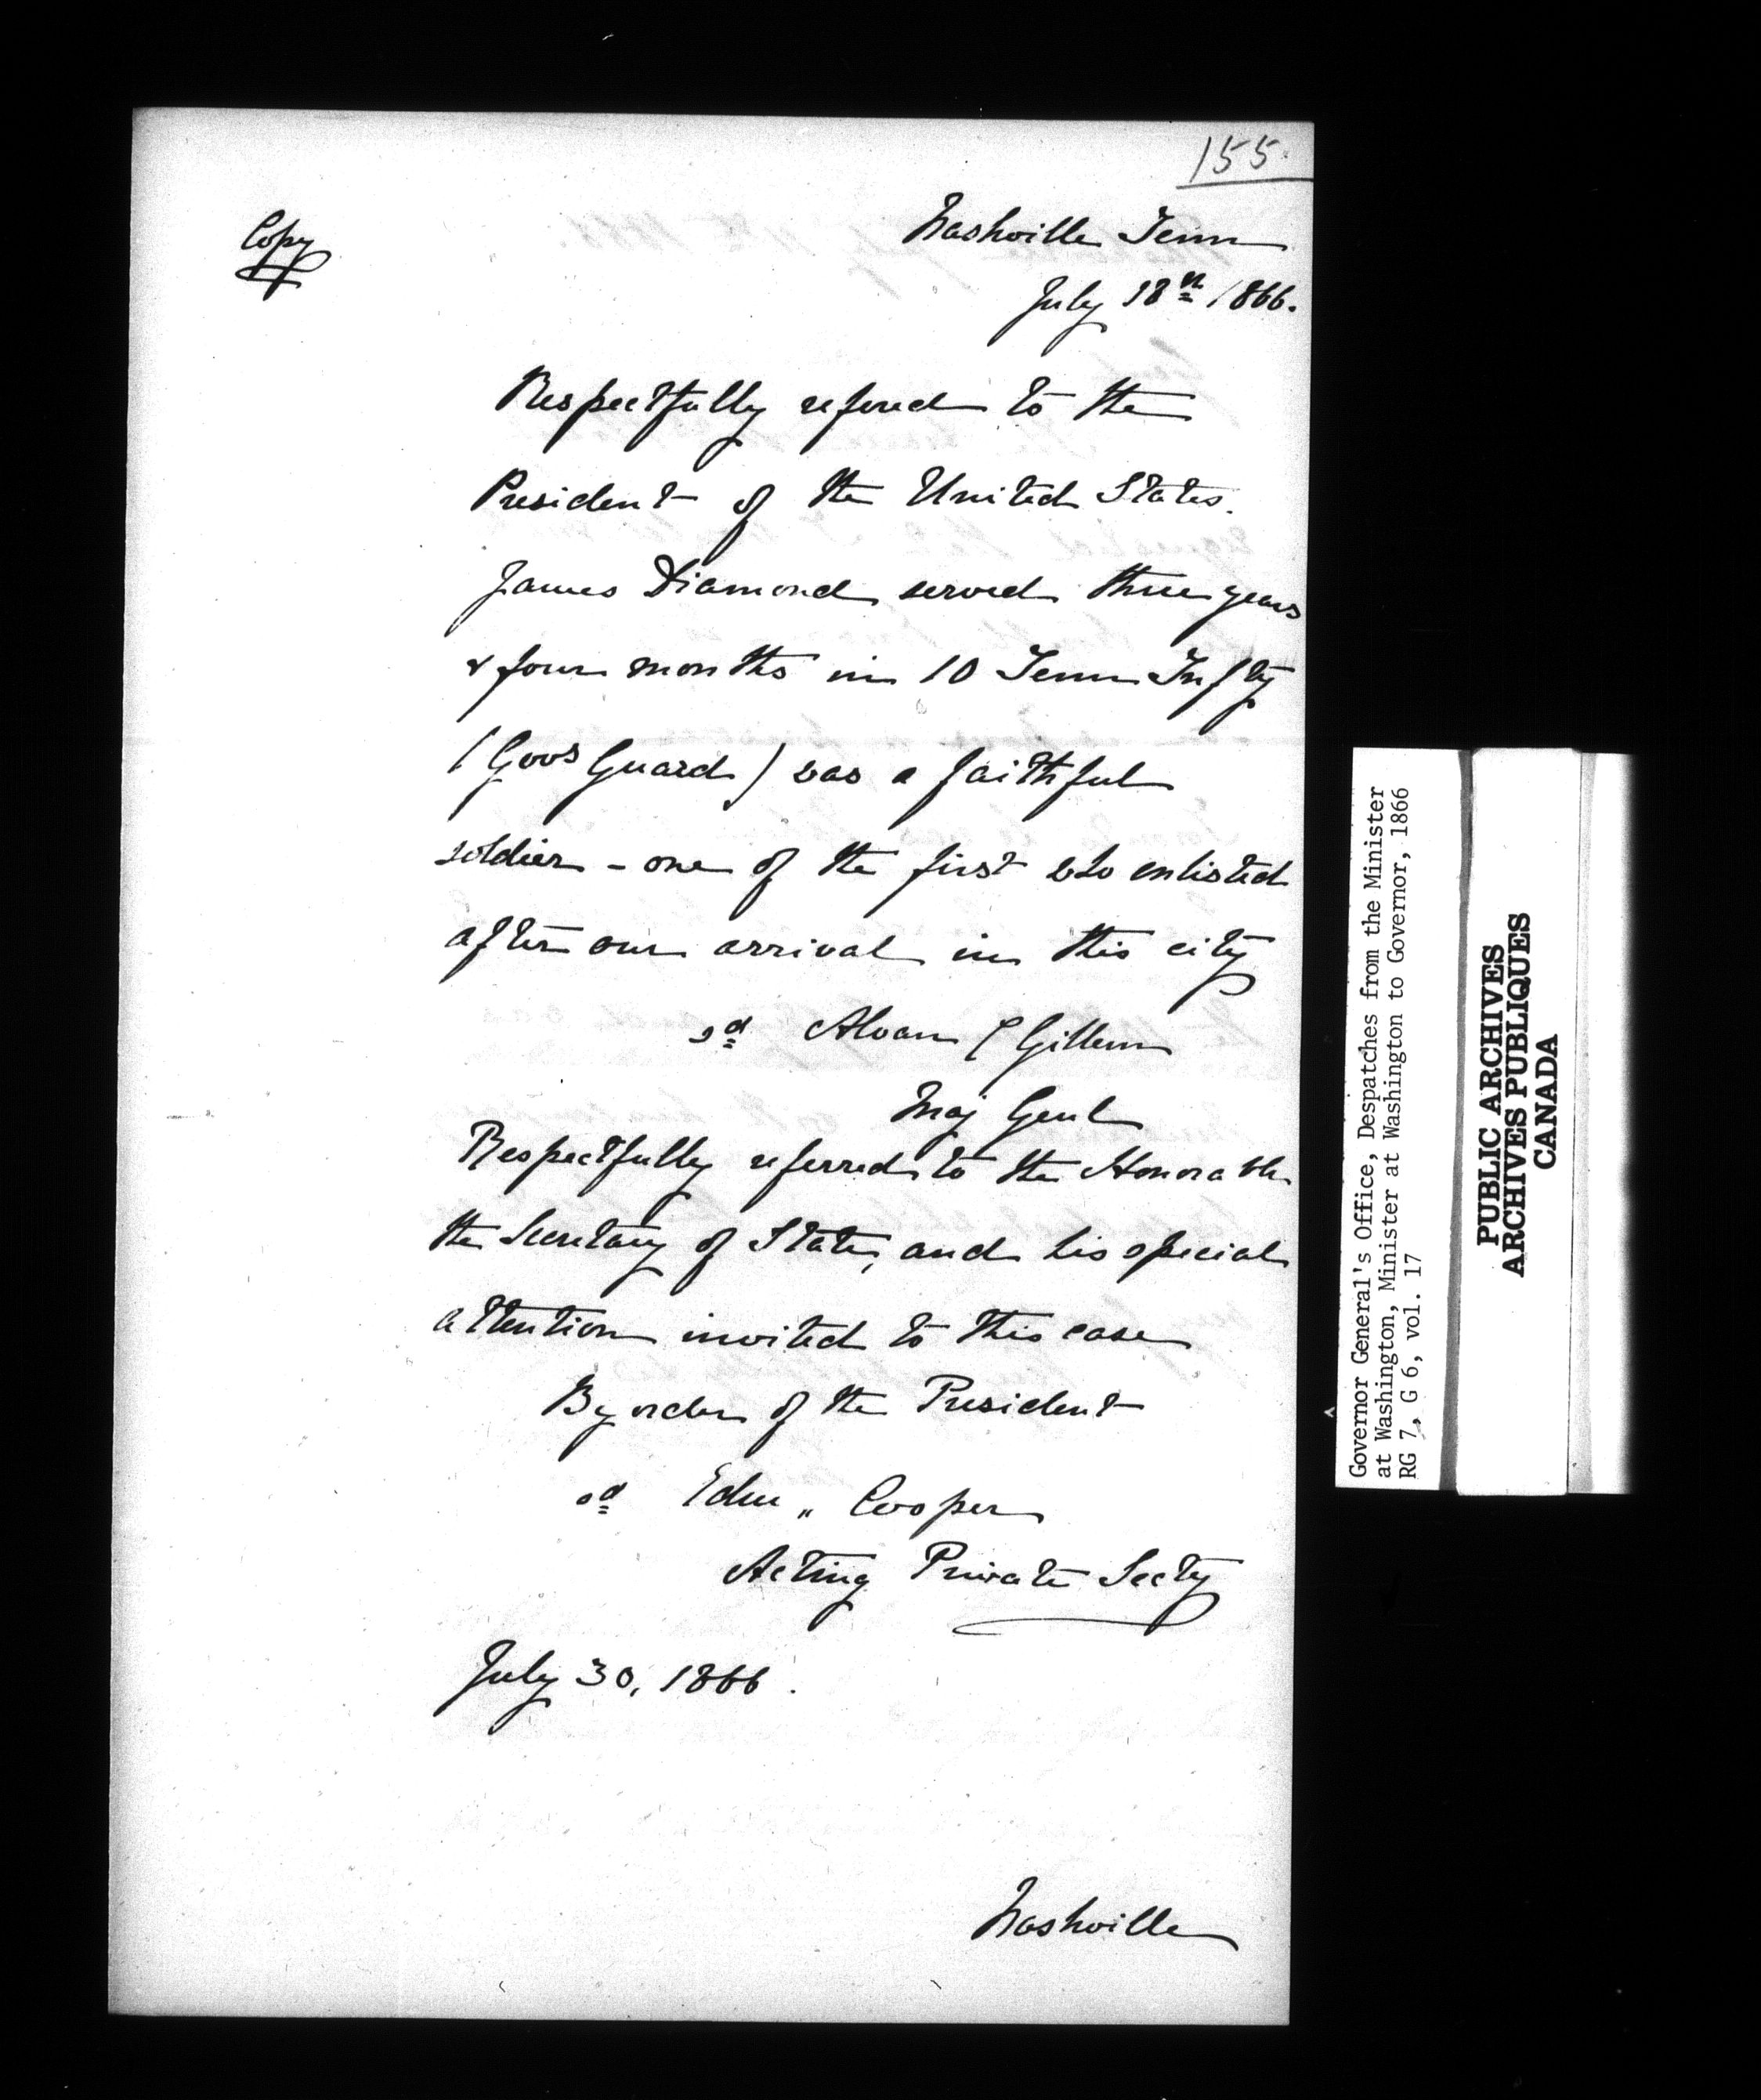 155.
Copy
Nashville Tenn
July 18th 1866.
Respectfully refered to the
President of the United States.
James Diamond served three years
& four months in 10 Tenn Infty
(Govs Guard) was a faithful
soldier - one of the first who enlisted
after our arrival in this city
sd Alvan C Gillem
Maj Genl
Respectfully referred to the Honorable
the Secretary of State, and his special
attention invited to this case
By order of the President
sd Edm " Cooper
Acting Private Secty
July 30, 1866.
Nashville
Governor General's Office, Despatches from the Minister
at Washington, Minister at Washington to Governor, 1866
RG 7, G 6, vol. 17
PUBLIC ARCHIVES
ARCHIVES PUBLIQUES
CANADA